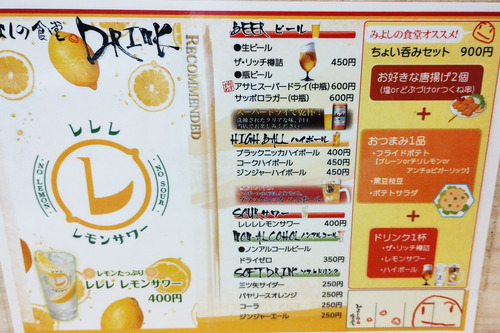 よしの食堂 DRINK
RECOMMENDED
レレレ
レ
NO LEMON,
NO SOUR.
レモンサワー
レモンたっぷり
レレレ レモンサワー
400円
BEER ビール
●生ビール
ザ・リッチ樽詰 450円
●瓶ビール
アサヒスーパードライ(中瓶)600円
サッポロラガー(中瓶) 600円
スーパードライで乾杯!
HIGH BALL ハイボール
ブラックニッカハイボール 400円
コークハイボール 450円
ジンジャーハイボール 450円
SOUR サワー
レレレレモンサワー 400円
NON-ALCOHOL ノンアルコール
●ノンアルコールビール
ドライゼロ 350円
SOFT DRINK ソフトドリンク
三ツ矢サイダー 250円
バヤリースオレンジ 250円
コーラ 250円
ジンジャーエール 250円
みよしの食堂オススメ!
ちょい呑みセット 900円
お好きな唐揚げ2個
(塩orどぶづけorつくね串)
+
おつまみ1品
・フライドポテト
[プレーンorチリレモンor
アンチョビガーリック]
・黒豆枝豆
・ポテトサラダ
+
ドリンク1杯
・ザ・リッチ樽詰
・レモンサワー
・ハイボール